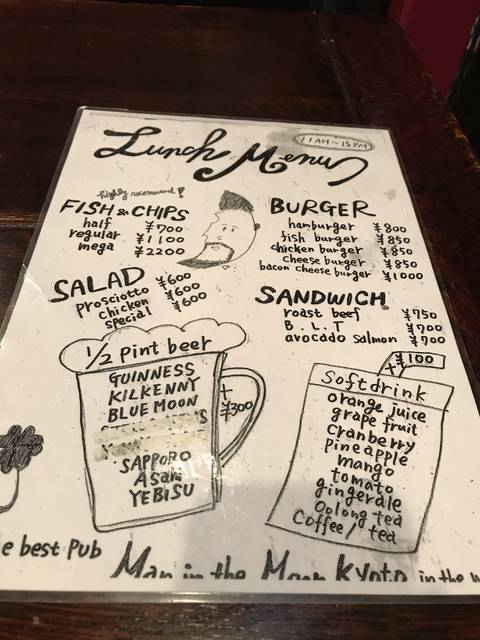 11AM~15PM
Lunch Menu
highly recommend!
FISH & CHIPS
half ¥700
regular ¥1100
mega ¥2200
BURGER
hamburger ¥800
fish burger ¥850
chicken burger ¥850
cheese burger ¥850
bacon cheese burger ¥1000
SALAD
prosciotto ¥600
chicken ¥600
special ¥600
SANDWICH
roast beef ¥750
B.L.T ¥700
avocado salmon ¥700
1/2 Pint beer
GUINNESS
KILKENNY
BLUE MOON
SAPPORO
Asahi
YEBISU
+
¥300
+¥100
Softdrink
orange juice
grape fruit
cranberry
pineapple
mango
tomato
gingerale
Oolong tea
Coffee/tea
e best Pub
Man in the Moon Kyoto in the